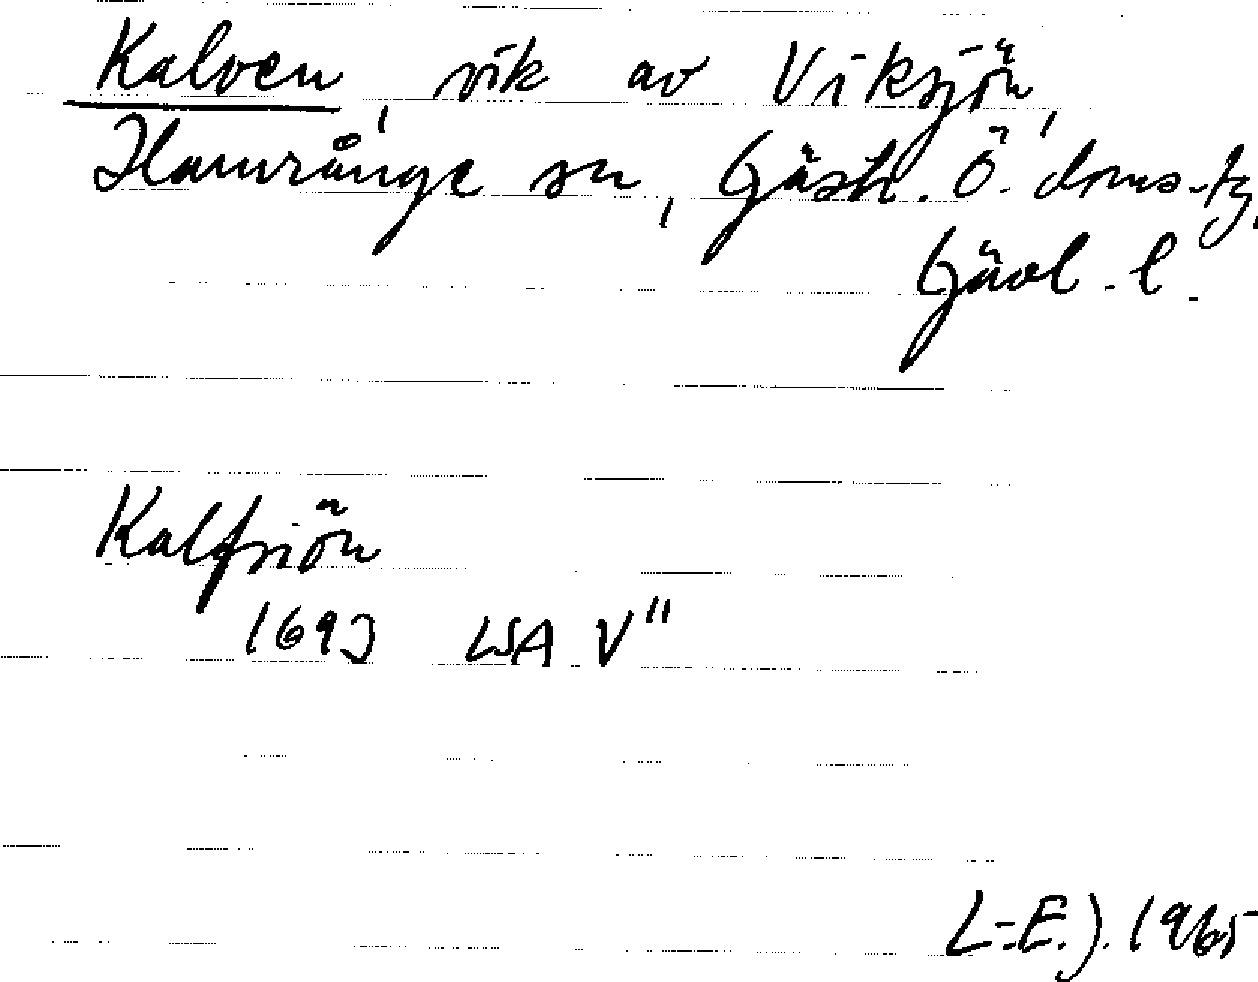 Kalven, vik av Viksjön,
Hamrånge sn, Gästr. Ö. doms-tg,
Gävl. l.
Kalfsiön
1693 LSA V"
L-E.J. 1965